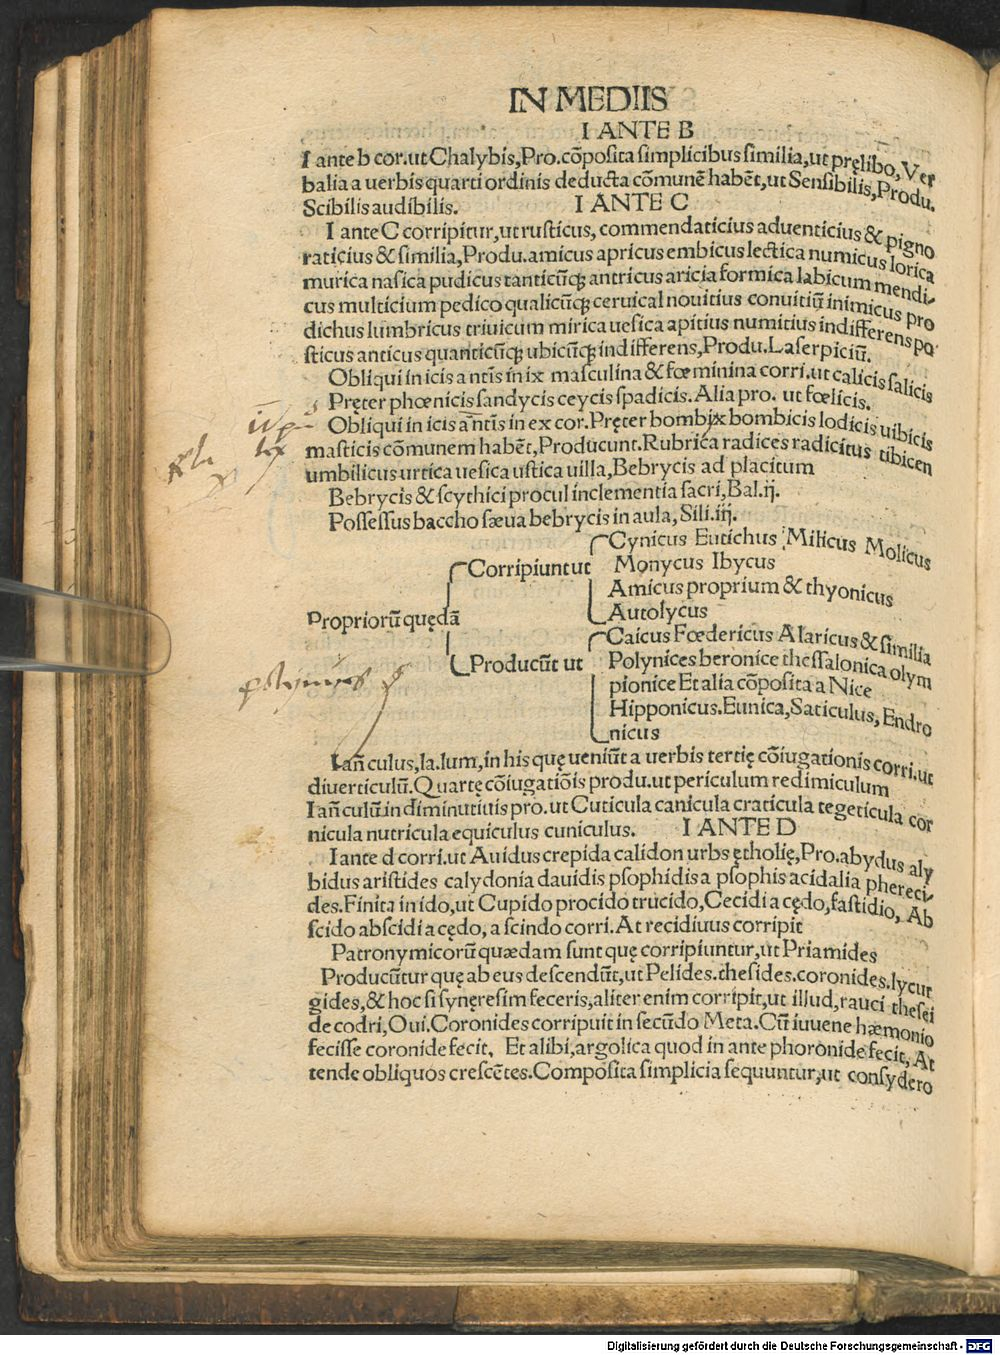 IN MEDIIS
I ANTE B
I ante b cor.ut Chalybis,Pro.cōposita simplicibus similia,ut pręlibo,Ver
balia a uerbis quarti ordinis deducta cōmunē habēt,ut Sensibilis,Produ.
Scibilis audibilis. I ANTE C
I ante C corripitur,ut rusticus, commendaticius aduenticius & pigno
raticius & similia,Produ.amicus apricus embicus lectica numicus lorica
murica nasica pudicus tanticūqꝫ antricus aricia formica labicum mendi-
cus multicium pedico qualicūqꝫ ceruical nouitius conuitiū inimicus pro
dichus lumbricus triuicum mirica uesica apitius numitius indifferens po
sticus anticus quanticūqꝫ ubicūqꝫ indifferens,Produ.Laserpiciū.
Obliqui in icis a ntīs in ix masculina & fœminina corri.ut calicis salicis
Pręter phœnicis sandycis ceycis spadicis. Alia pro. ut fœlicis.
Obliqui in icis a ntīs in ex cor.Pręter bombix bombicis lodicis uibicis
masticis cōmunem habēt,Producunt.Rubrica radices radicitus tibicen
umbilicus urtica uesica ustica uilla,Bebrycis ad placitum
Bebrycis & scythici procul inclementia sacri,Bal.ij.
Possessus baccho sæua bebrycis in aula, Sili.iij.
Propriorū quędā
Corripiunt ut
Cynicus Eutichus Milicus Molicus
Monycus Ibycus
Amicus proprium & thyonicus
Autolycus
Producūt ut
Caicus Fœdericus Alaricus & similia
Polynices beronice thessalonica olym
pionice Et alia cōposita a Nice
Hipponicus.Eunica,Saticulus, Endro
nicus
polynices
I añ culus,la.lum,in his quę ueniūt a uerbis tertię cōiugationis corri.ut
diuerticulū.Quartę cōiugatiōis produ.ut periculum redimiculum
I añ culū.in diminutiuis pro.ut Cuticula canicula craticula tegeticula cor
nicula nutricula equiculus cuniculus. I ANTE D
I ante d corri.ut Auidus crepida calidon urbs ętholię,Pro.abydus aly
bidus aristides calydonia dauidis psophidis a psophis acidalia phereci-
des.Finita in ido,ut Cupido procido trucido,Cecidi a cędo,fastidio, Ab
scido abscidi a cędo, a scindo corri.At recidiuus corripit
Patronymicorū quædam sunt quę corripiuntur,ut Priamides
Producūtur quę ab eus descendūt,ut Pelides.thesides.coronides.lycur
gides,& hoc si synęresim feceris,aliter enim corripit,ut illud,rauci thesei
de codri,Oui.Coronides corripuit in secūdo Meta.Cū iuuene hæmonio
fecisse coronide fecit, Et alibi,argolica quod in ante phoronide fecit, At
tende obliquos crescētes.Composita simplicia sequuntur,ut consydero
Digitalisierung gefördert durch die Deutsche Forschungsgemeinschaft - DFG